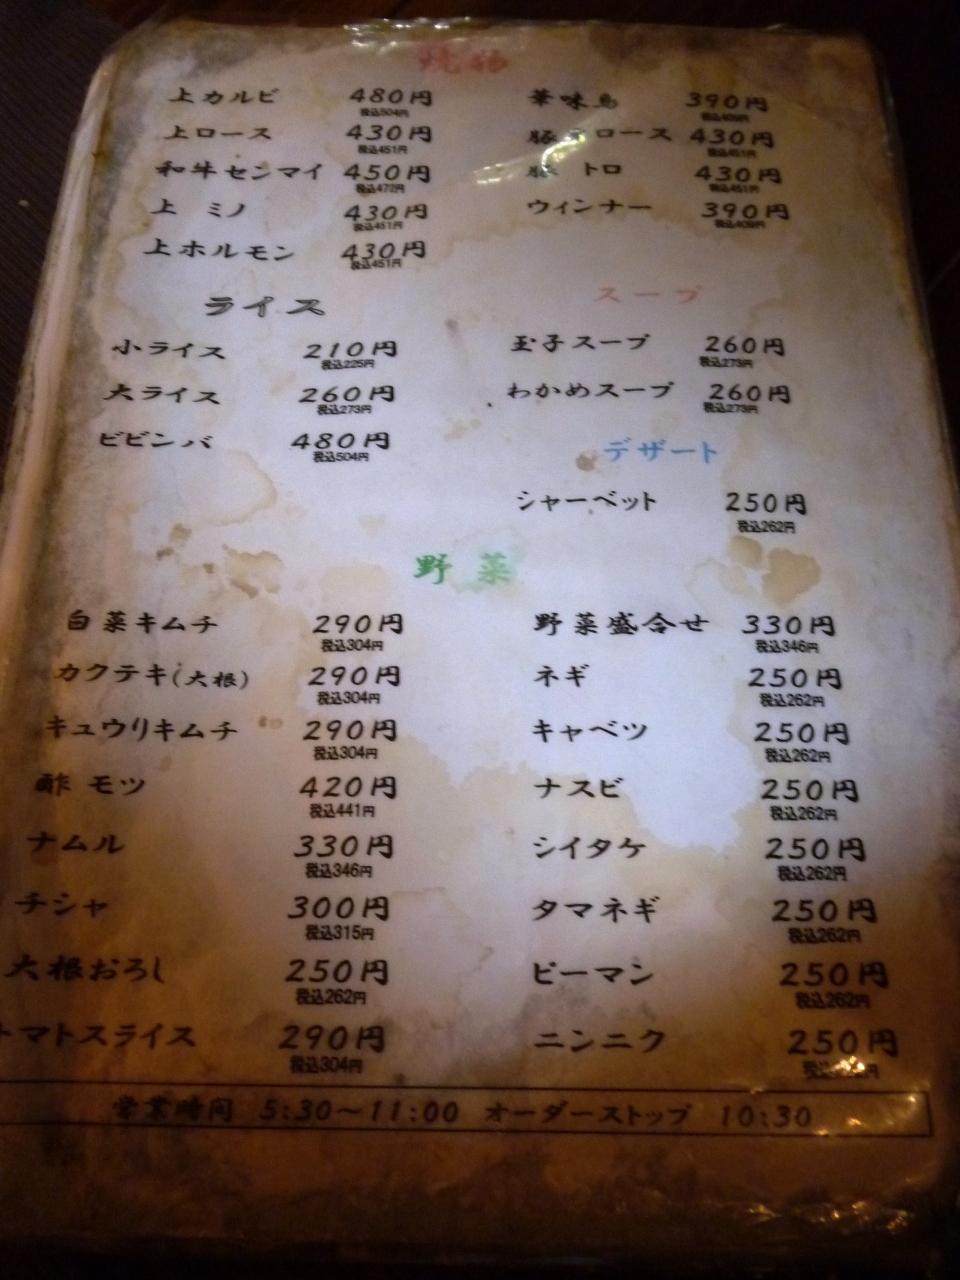 焼物
上カルビ 480円 華味鳥 390円
税込504円 税込409円
上ロース 430円 豚 ロース 430円
税込451円 税込451円
和牛センマイ 450円 豚トロ 430円
税込472円 税込451円
上ミノ 430円 ウィンナー 390円
税込451円 税込409円
上ホルモン 430円
税込451円
ライス スープ
小ライス 210円 玉子スープ 260円
税込225円 税込273円
大ライス 260円 わかめスープ 260円
税込273円 税込273円
ビビンバ 480円 デザート
税込504円
シャーベット 250円
税込262円
野菜
白菜キムチ 290円 野菜盛合せ 330円
税込304円 税込346円
カクテキ(大根) 290円 ネギ 250円
税込304円 税込262円
キュウリキムチ 290円 キャベツ 250円
税込304円 税込262円
酢モツ 420円 ナスビ 250円
税込441円 税込262円
ナムル 330円 シイタケ 250円
税込346円 税込262円
チシャ 300円 タマネギ 250円
税込315円 税込262円
大根おろし 250円 ピーマン 250円
税込262円 税込262円
トマトスライス 290円 ニンニク 250円
税込304円
営業時間 5:30〜11:00 オーダーストップ 10:30